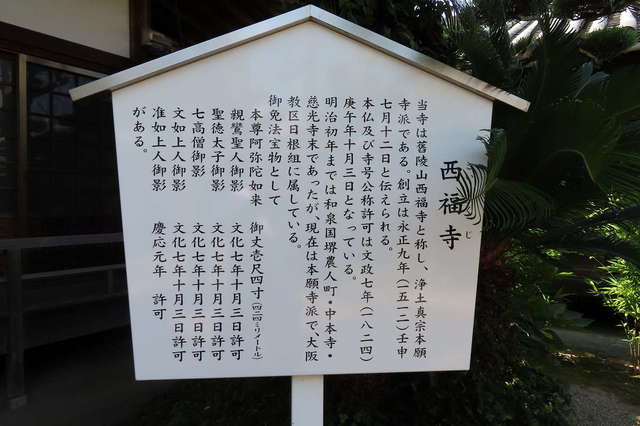 西福寺
じ
当寺は舊陵山西福寺と称し、浄土真宗本願
寺派である。創立は永正九年(一五一二)壬申
七月十二日と伝えられる。
本仏及び寺号公称許可は文政七年(一八二四)
庚午年十月三日となっている。
明治初年までは和泉国堺農人町・中本寺・
慈光寺末であったが、現在は本願寺派で、大阪
教区日根組に属している。
御免法宝物として
本尊阿弥陀如来 御丈壱尺四寸(四二四ミリメートル)
親鸞聖人御影 文化七年十月三日許可
聖徳太子御影 文化七年十月三日許可
七高僧御影 文化七年十月三日許可
文如上人御影 文化七年十月三日許可
准如上人御影 慶応元年 許可
がある。